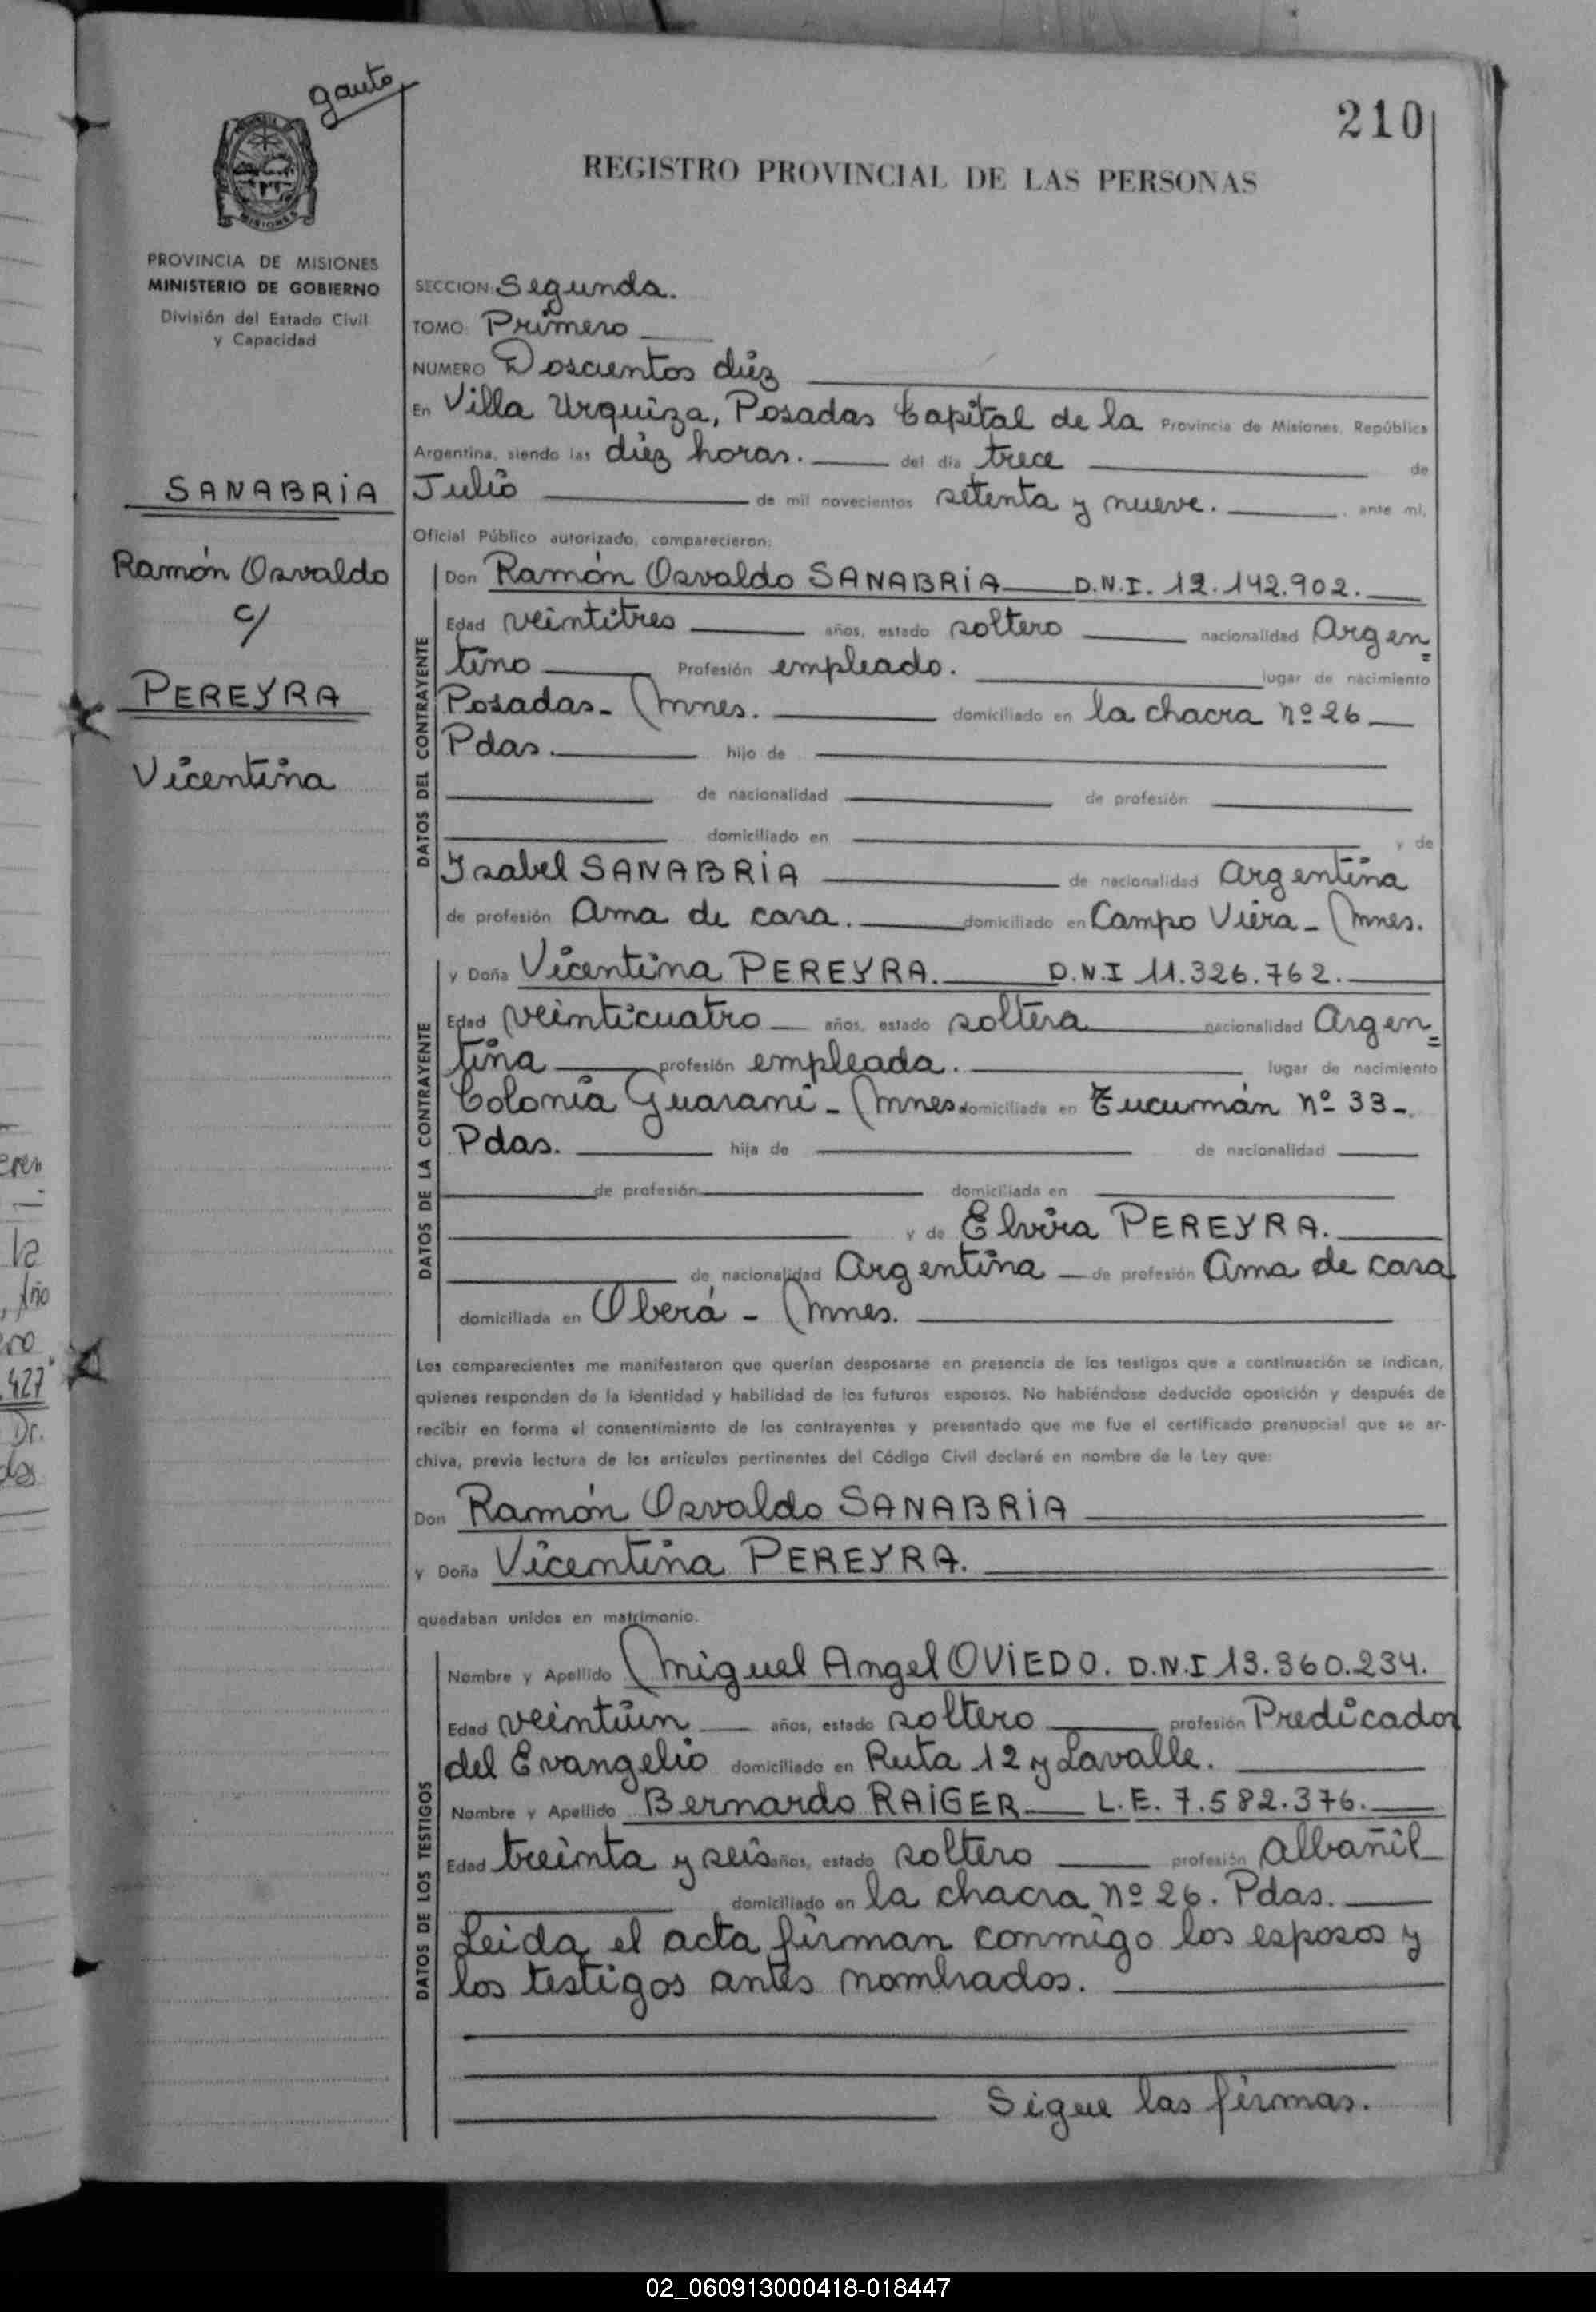 gauto
210
REGISTRO PROVINCIAL DE LAS PERSONAS
MISIONES
PROVINCIA DE MISIONES
MINISTERIO DE GOBIERNO
División del Estado Civil
y Capacidad
SANABRIA
Ramón Osvaldo
c/
PEREYRA
Vicentina
SECCION: Segunda.
TOMO: Primero
NUMERO Doscientos diéz
En Villa Urquiza, Posadas Capital de la Provincia de Misiones, República
Argentina, siendo las diéz horas. del día trece de
Julio de mil novecientos setenta y nueve. , ante mí,
Oficial Público autorizado, comparecieron:
DATOS DEL CONTRAYENTE
Don Ramón Osvaldo SANABRIA D.N.I. 12.142.902.
Edad veintitres años, estado soltero nacionalidad Argen=
tino Profesión empleado. lugar de nacimiento
Posadas- Mnes. domiciliado en la chacra nº 26
Pdas. hijo de
de nacionalidad de profesión
domiciliado en y de
Isabel SANABRIA de nacionalidad Argentina
de profesión Ama de casa. domiciliado en Campo Viera - Mnes.
DATOS DE LA CONTRAYENTE
y Doña Vicentina PEREYRA. D.N.I 11.326.762.
Edad veinticuatro años, estado soltera nacionalidad Argen=
tina profesión empleada. lugar de nacimiento
Colonia Guarani - Mnes domiciliada en Tucumán nº 33-.
Pdas. hija de de nacionalidad
de profesión domiciliada en
y de Elvira PEREYRA.
de nacionalidad Argentina de profesión Ama de casa
domiciliada en Oberá - Mnes.
Los comparecientes me manifestaron que querían desposarse en presencia de los testigos que a continuación se indican,
quienes responden de la identidad y habilidad de los futuros esposos. No habiéndose deducido oposición y después de
recibir en forma el consentimiento de los contrayentes y presentado que me fue el certificado prenupcial que se ar-
chiva, previa lectura de los artículos pertinentes del Código Civil declaré en nombre de la Ley que:
Don Ramón Osvaldo SANABRIA
y Doña Vicentina PEREYRA.
quedaban unidos en matrimonio.
DATOS DE LOS TESTIGOS
Nombre y Apellido Miguel Angel OVIEDO. D.N.I 13.360.234.
Edad veintiún años, estado soltero profesión Predicador
del Evangelio domiciliado en Ruta 12 y Lavalle.
Nombre y Apellido Bernardo RAIGER L.E. 7.582.376.
Edad treinta y seis años, estado soltero profesión albañil
domiciliado en la chacra nº 26. Pdas.
Leida el acta firman conmigo los esposos y
los testigos antes nombrados.
Sigue las firmas.
la
, Año
427
Dr.
02_060913000418-018447